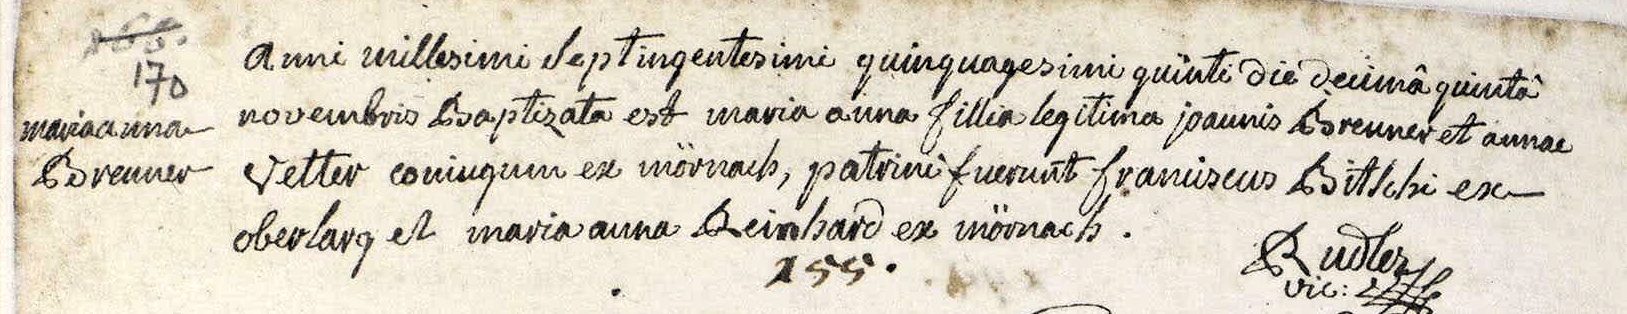 170
Anni millesimi septingentesimi quinquagesimi quinti die decimâ quintâ
novembris Baptizata est maria anna fillia legitima joannis Brenner et annae
Vetter coniugum ex mörnach, patrini fuerunt franciscus Bitschi ex
oberlarg et maria anna Reinhard ex mörnach.
maria anna
Brenner
155.
Rudler
vic: